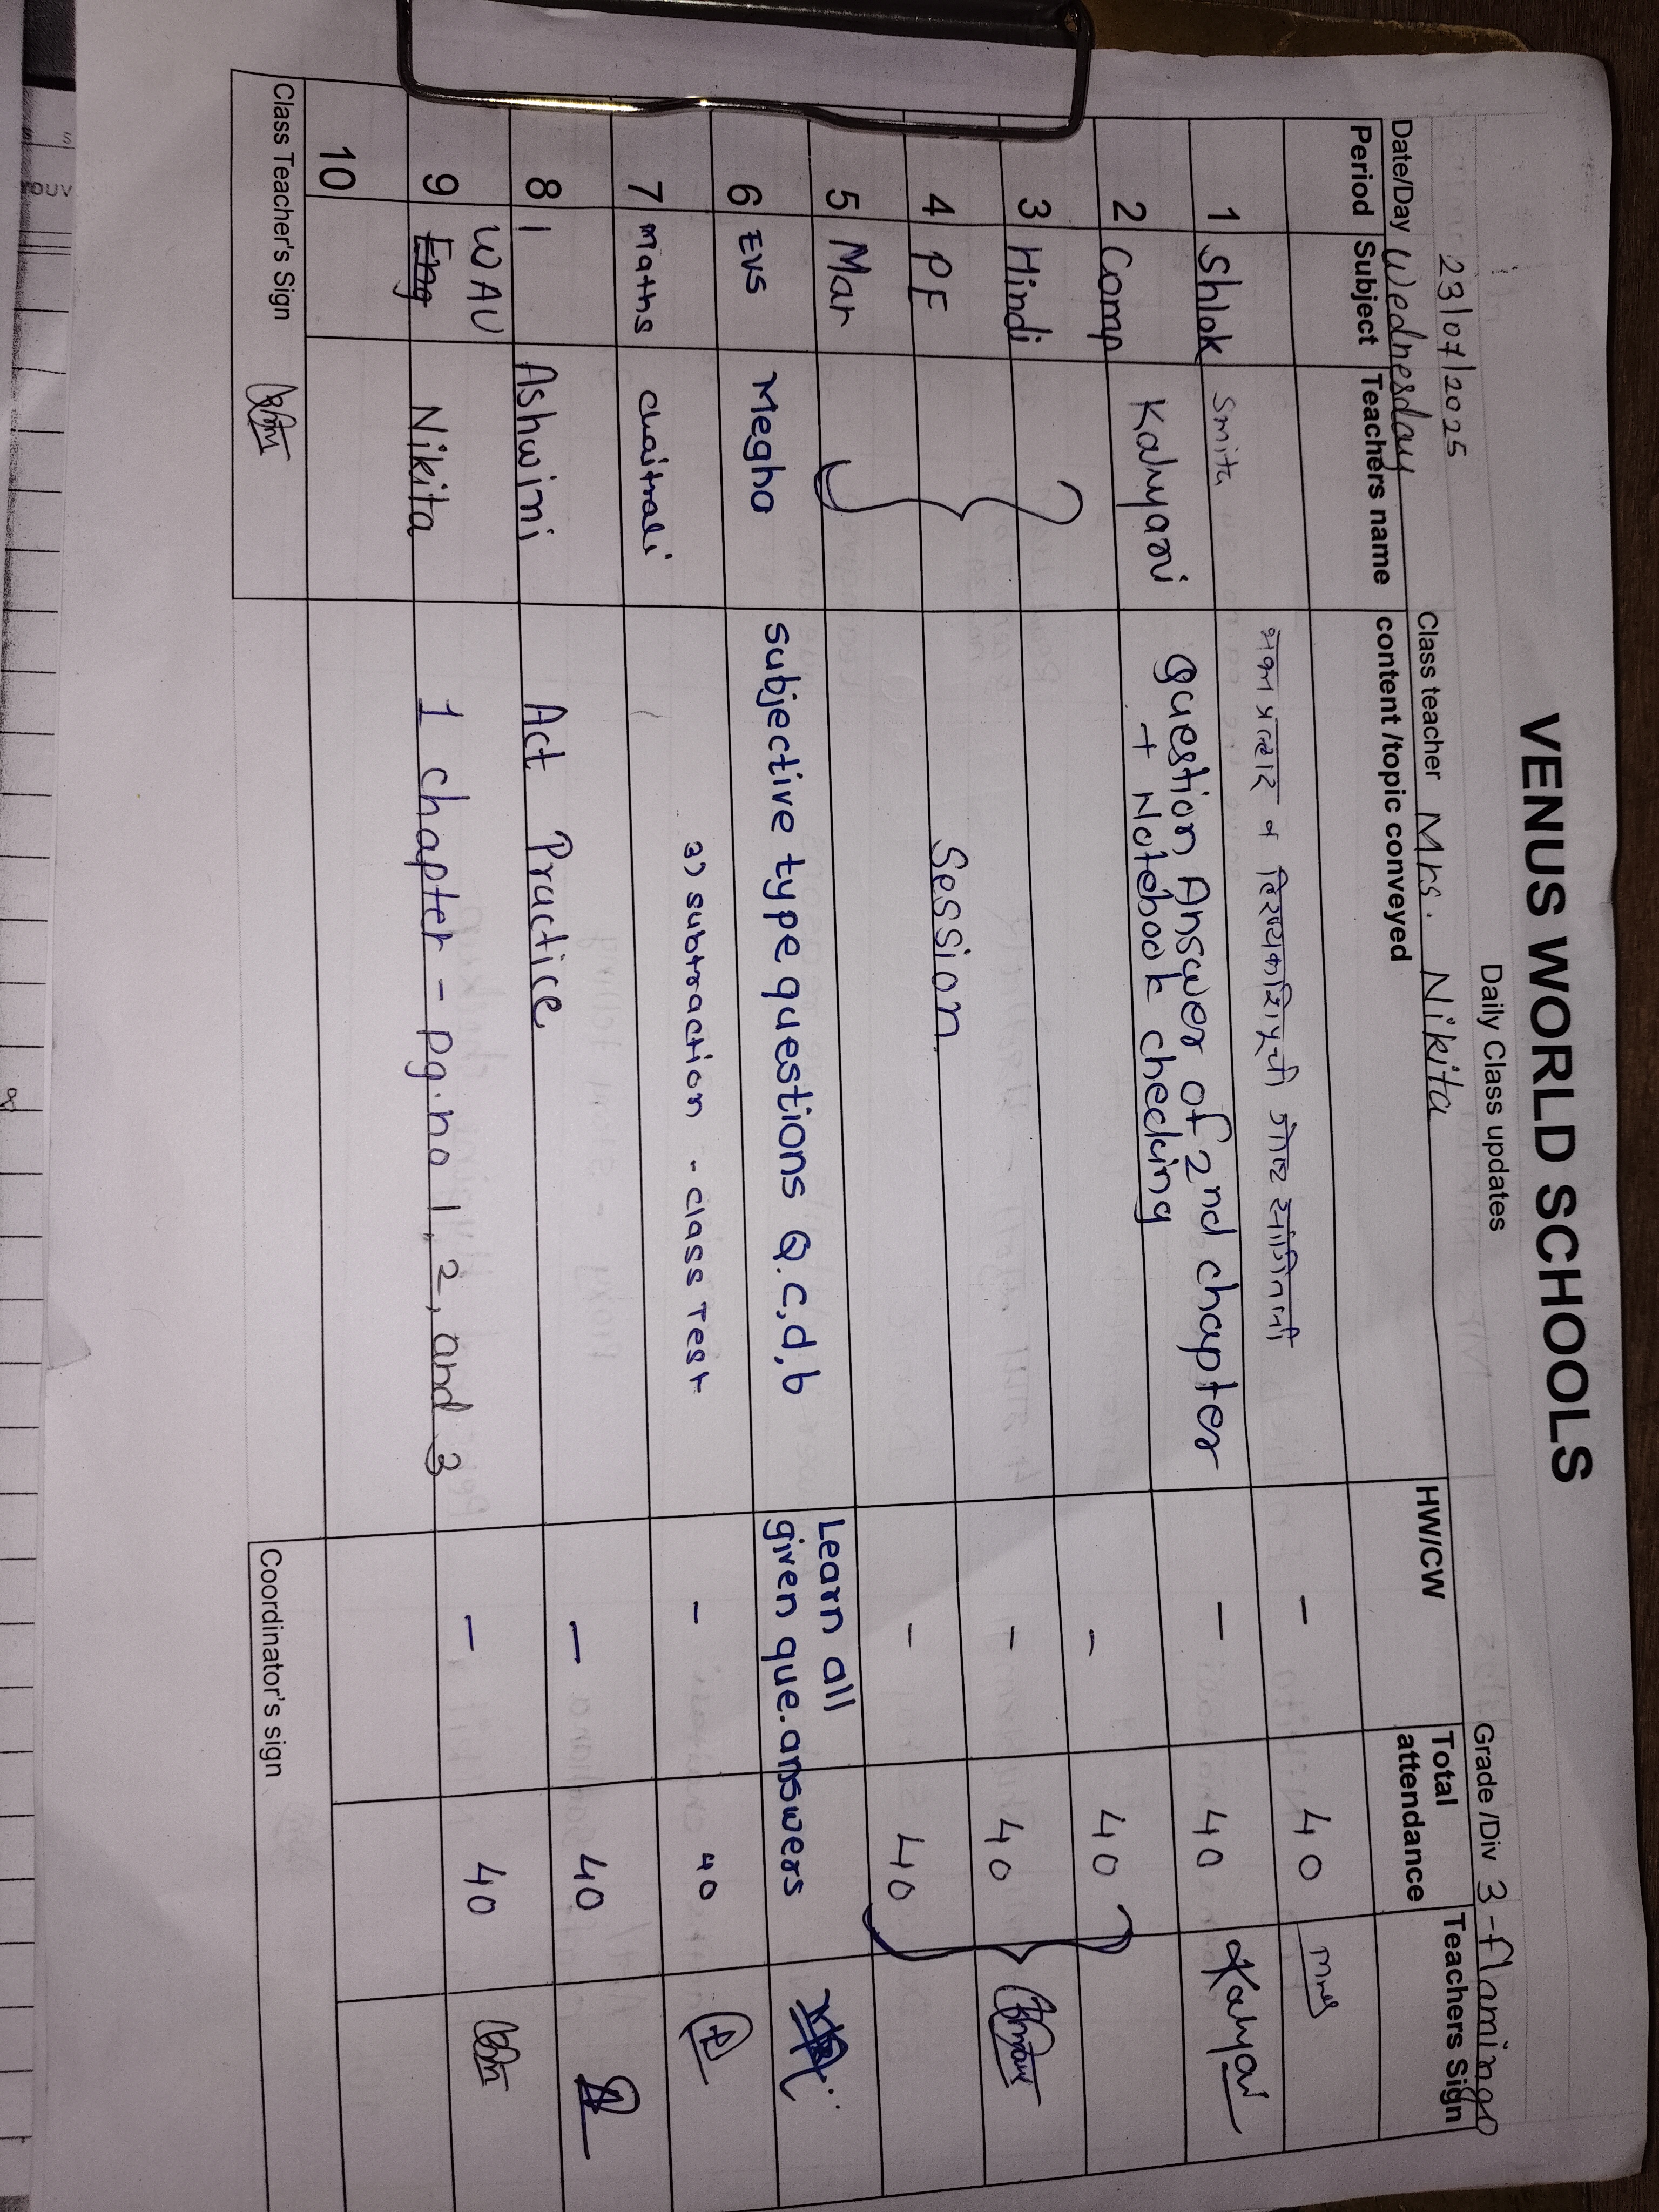 VENUS WORLD SCHOOLS
Daily Class updates
23/07/2025
Date/Day Wednesday Class teacher Mrs. Nikita Grade/Div 3-flamingo
Period Subject Teachers name content/topic conveyed HW/CW Total attendance Teachers Sign
1 Shlok Smita भक्त प्रल्हाद व हिरण्यकशिपूची गोष्ट सांगितली - 40
2 Comp Kalyani question Answer of 2nd chapter - 40 Kalyani
+ Notebook checking
3 Hindi - 40
4 PF Session - 40
5 Mar - 40
6 EVS Megha subjective type questions Q.c,d,b Learn all
given que.answers
7 maths chaitrali 3) subtraction - class Test - 40
8 | Ashwini Act Practice - 40
WAU
9 Eng Nikita 1 chapter - pg.no 1, 2, and 3 - 40
10
Class Teacher's Sign Coordinator's sign